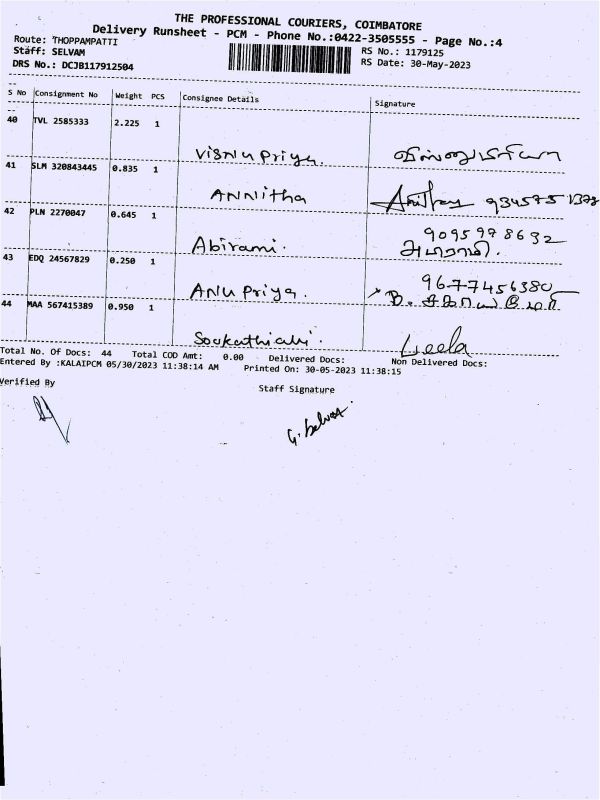 THE PROFESSIONAL COURIERS, COIMBATORE
Delivery Runsheet - PCM - Phone No.:0422-3505555 - Page No.:4
Route: THOPPAMPATTI
RS No.: 1179125
Staff: SELVAM
RS Date: 30-May-2023
DRS No.: DCJB117912504
S No Consignment No Weight PCS Consignee Details Signature
40 TVL 2585333 2.225 1
Visnu Priya.
41 SLM 320843445 0.835 1
ANNitha
42 PLN 2270047 0.645 1
9095978692
Abirami. அபிராமி.
43 EDQ 24567829 0.250 1
9677456380
ANU Priya. B.
44 MAA 567415389 0.950 1
Leela
Total No. Of Docs: 44 Total COD Amt: 0.00 Delivered Docs: Non Delivered Docs:
Entered By :KALAIPCM 05/30/2023 11:38:14 AM Printed On: 30-05-2023 11:38:15
Verified By Staff Signature
G. Selvam